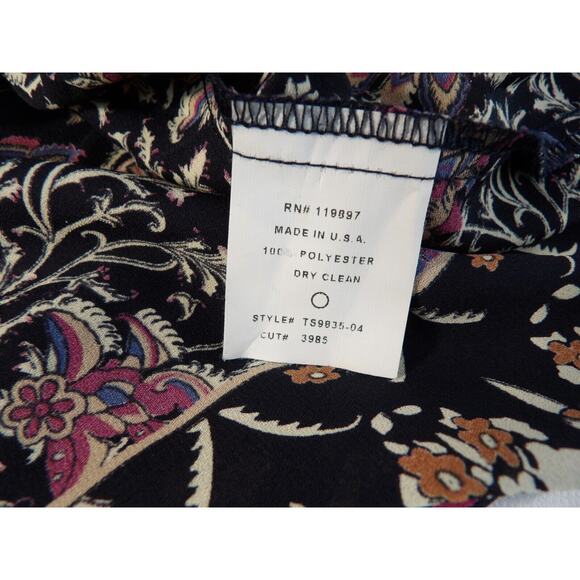 RN# 119897
MADE IN U.S.A.
100% POLYESTER
DRY CLEAN
STYLE# TS9835-04
CUT# 3985